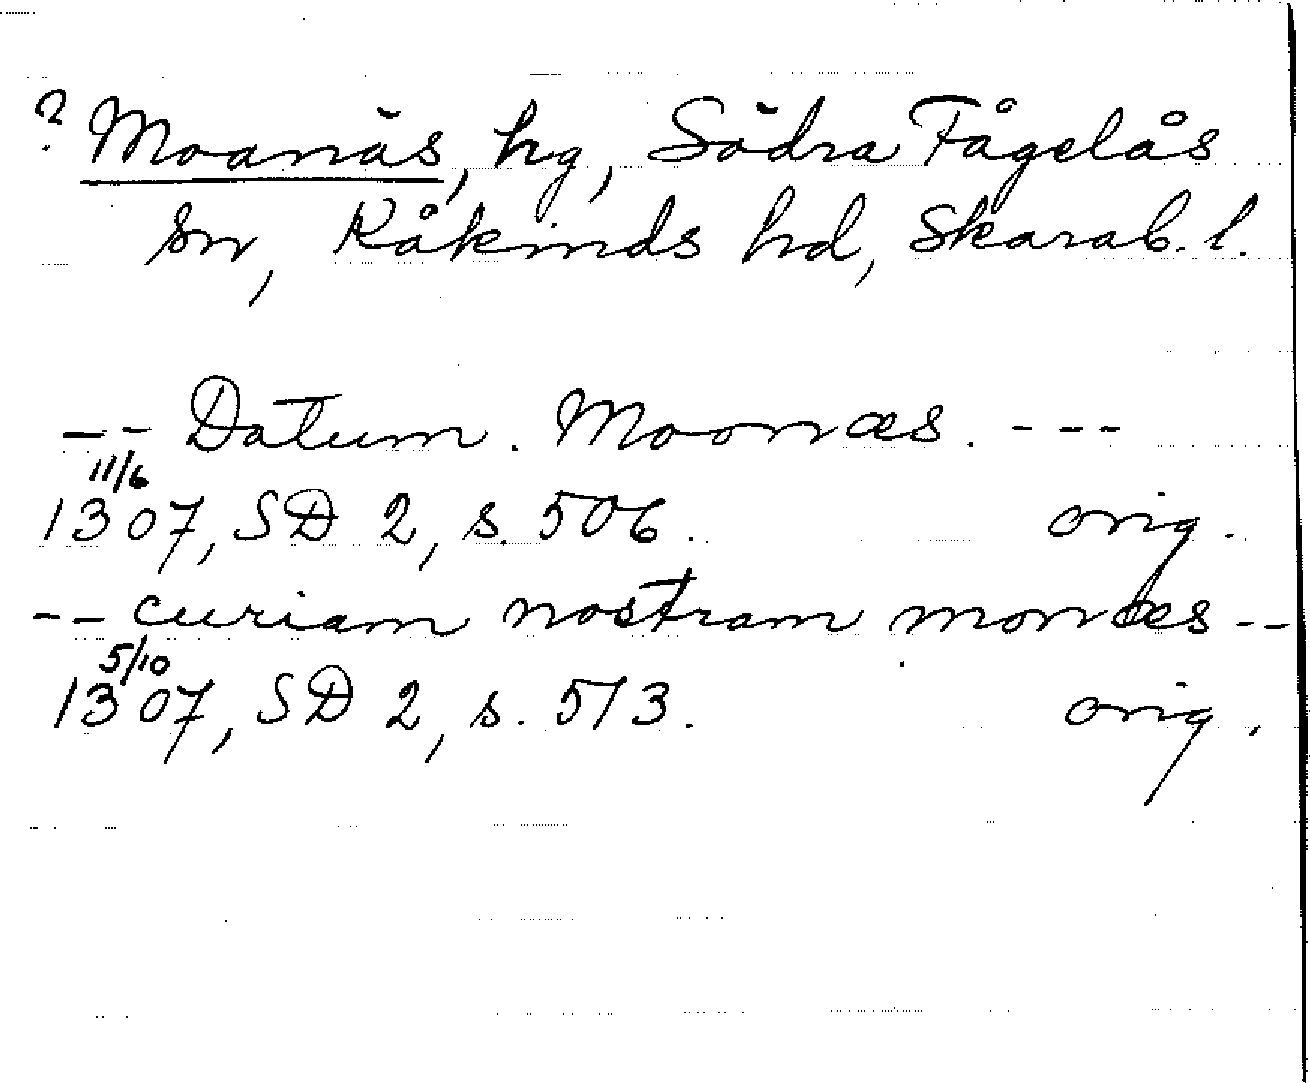 ? Moanäs, hg, Södra Fågelås
sn, Kåkinds hd, Skarab. l.
-- Datum. Moonæs. ---
11/6
1307, SD 2, s. 506. orig.
-- curiam nostram monæs --
5/10
1307, SD 2, s. 513. orig.